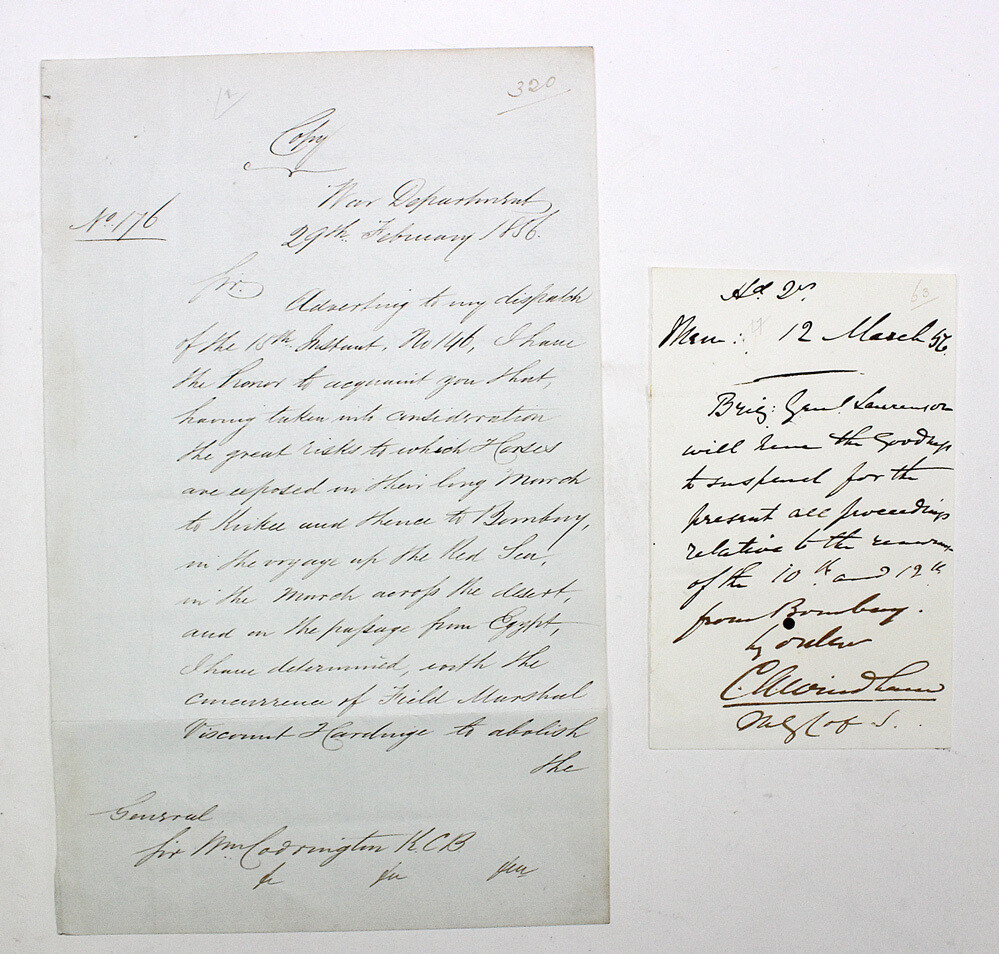 320
Copy
War Department
No. 176
29th. February 1856.
Sir.
Adverting to my dispatch
of the 15th. Instant, No 146, I have
the honor to acquaint you that,
having taken into consideration
the great risks to which Horses
are exposed in their long March
to Kirkee and thence to Bombay,
in the voyage up the Red Sea,
in the March across the desert,
and in the passage from Egypt,
I have determined, with the
concurrence of Field Marshal
Viscount Hardinge to abolish
the
General
Sir Wm Codrington K.C.B
&c &c &c
Hd. Qrs.
63
Mem: 12 March 56.
Brig: Genl. Laurenson
will have the goodness
to suspend for the
present all proceedings
relative to the
of the 10th. and 12th
from Bombay.
by order
C A Windham
of S.